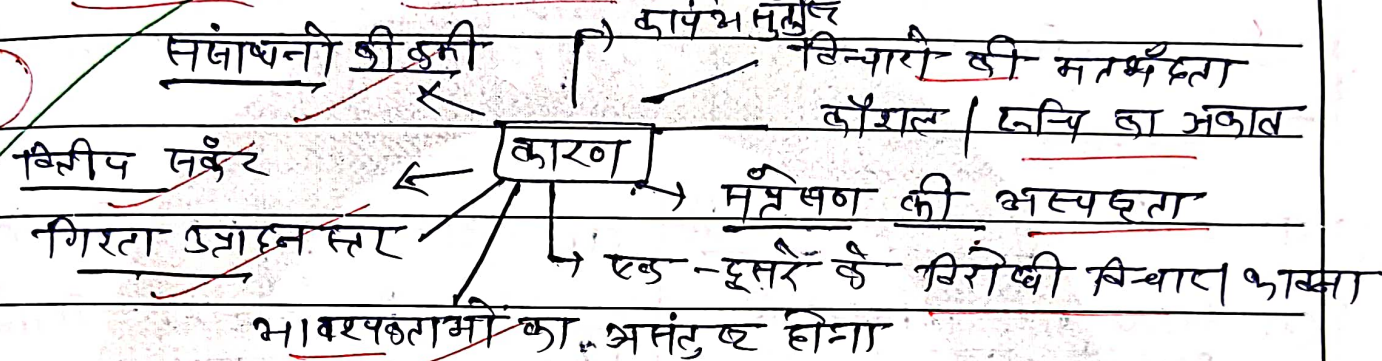 कार्य असंतुष्ट
संसाधनो की कमी
विचारो की मतभेदता
कौशल / रूचि का अभाव
वित्तीय संकट
कारण
संप्रेषण की अस्पष्टता
गिरता उत्पादन स्तर
एक-दूसरे के विरोधी विचार। भावना
आवश्यकताओं का असंतुष्ट होना